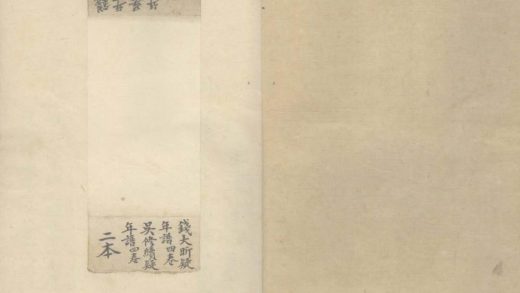 錢大昕疑
年譜四卷
吳修續疑
年譜四卷
二本